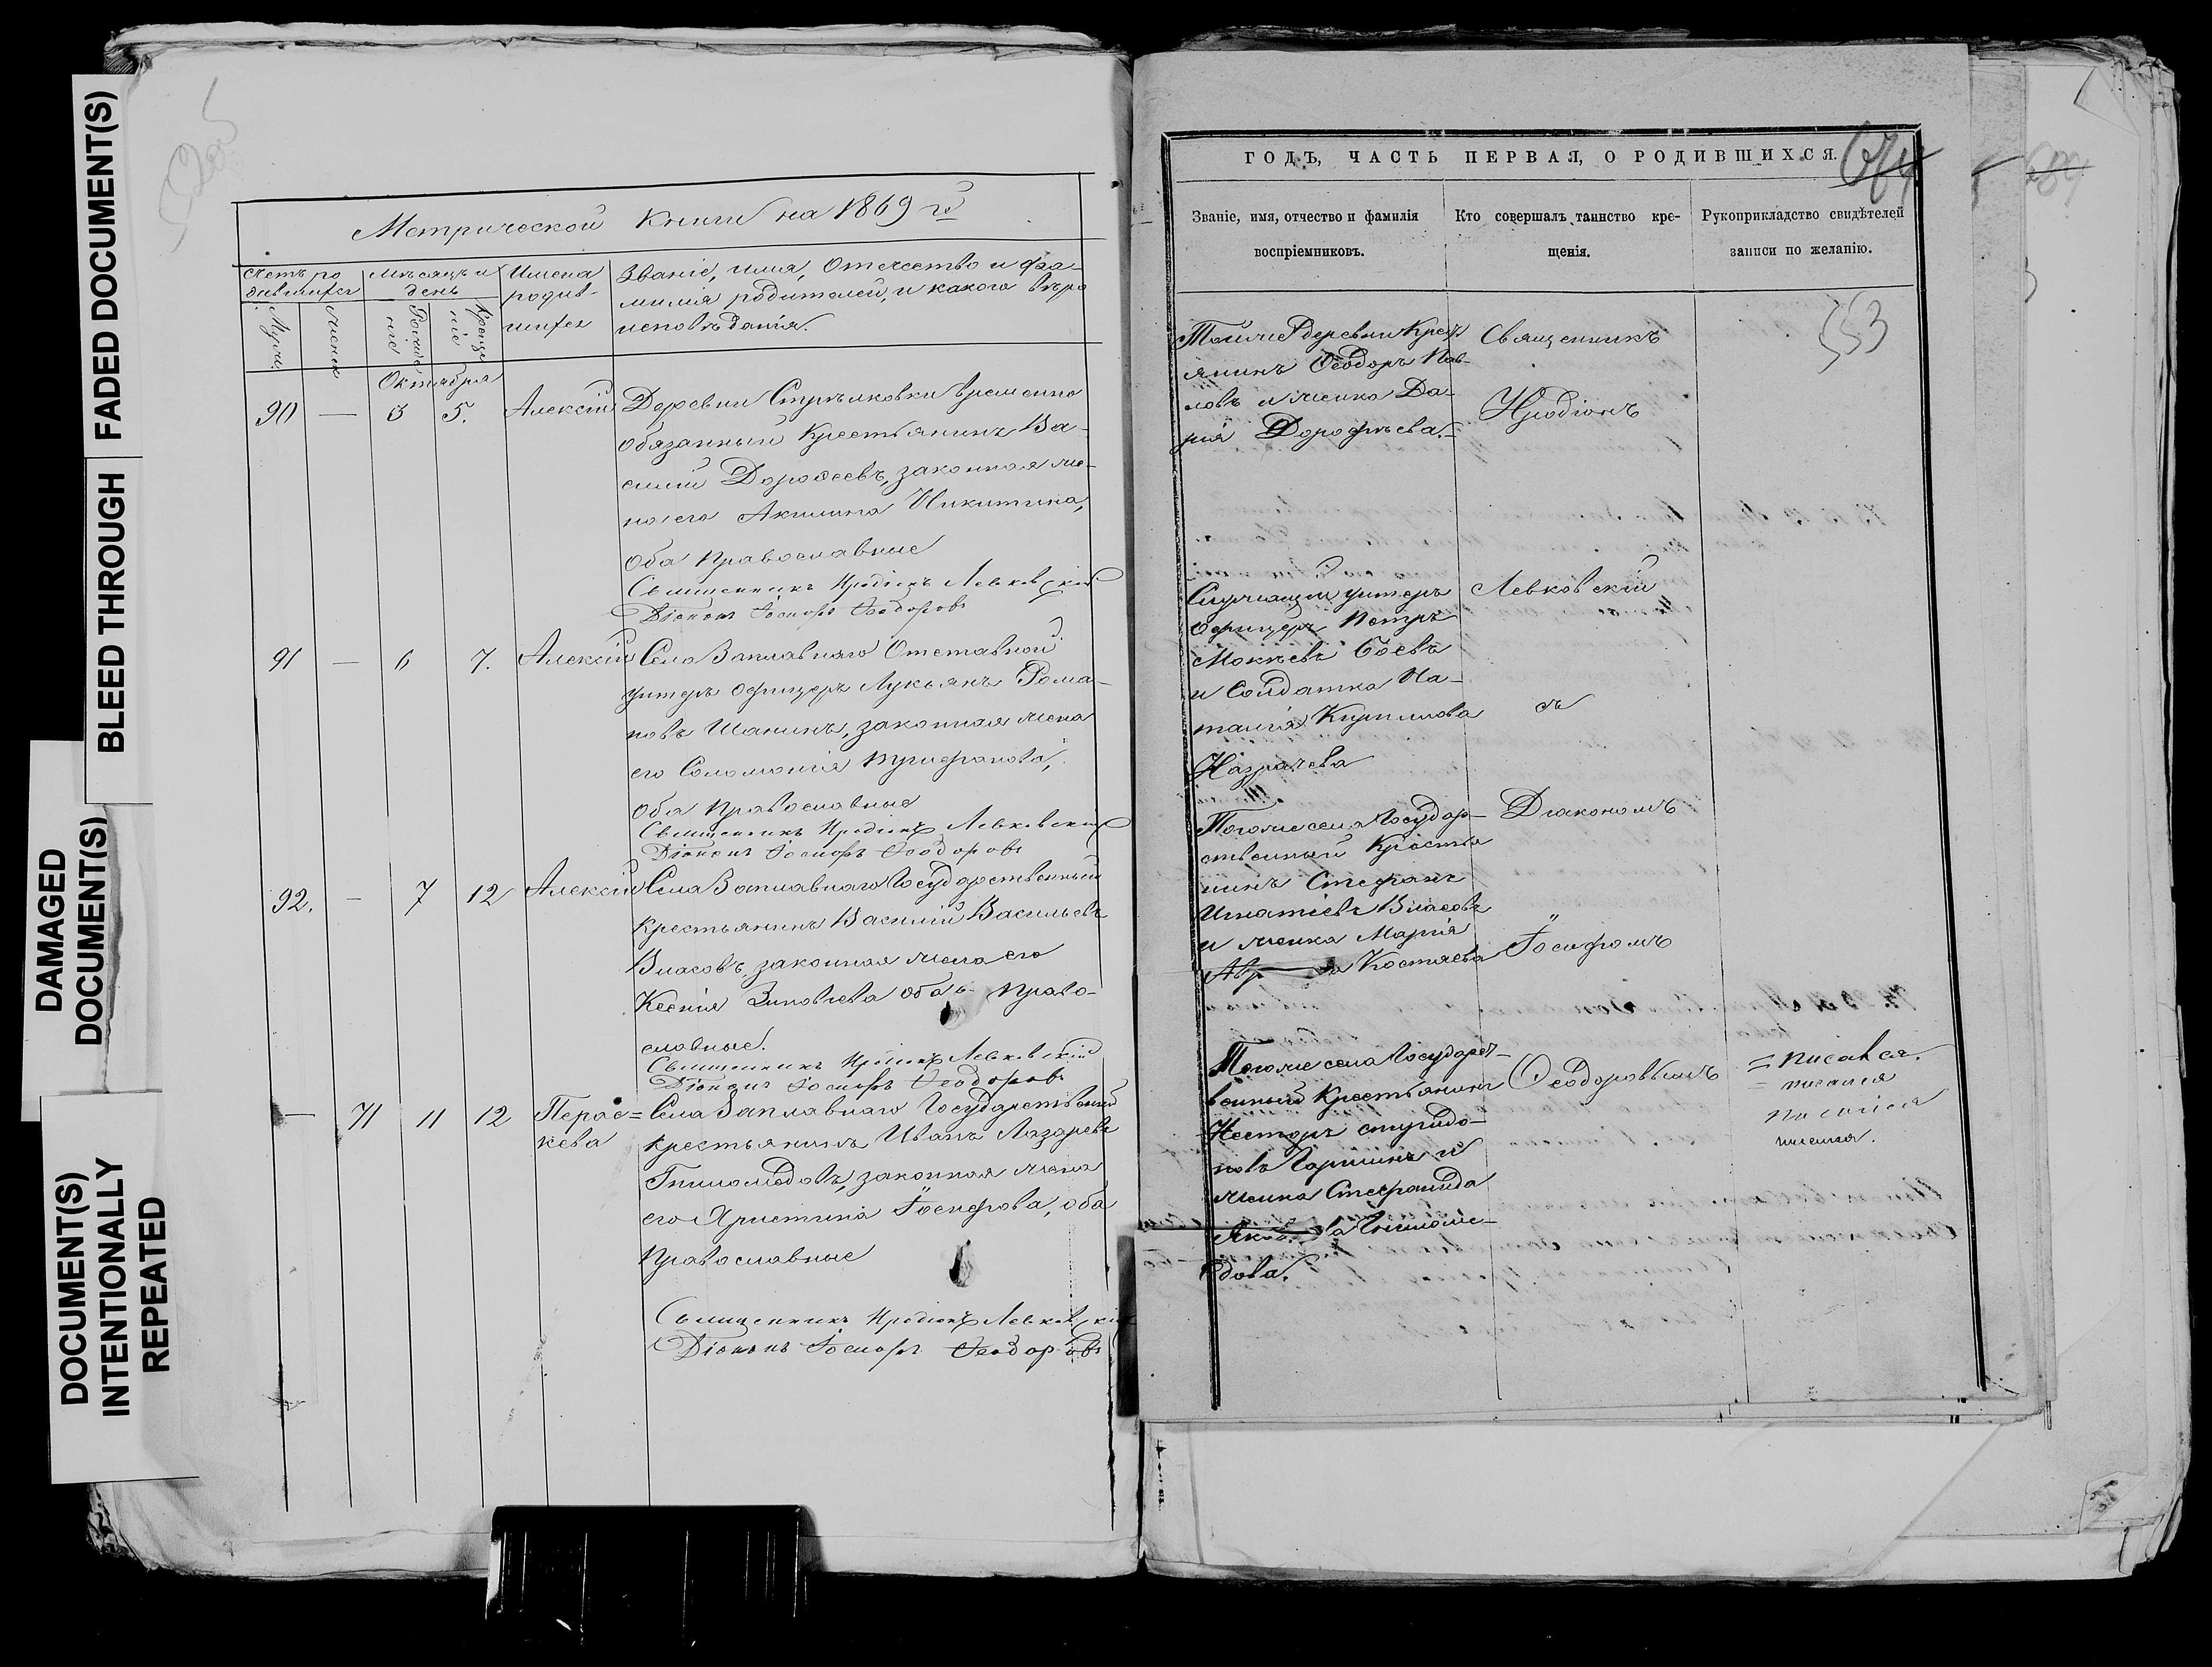 FADED DOCUMENT(S)
BLEED THROUGH
DAMAGED
DOCUMENT(S)
DOCUMENT(S)
INTENTIONALLY
REPEATED
Метрической Книги на 1869 й
Счетъ ро
дившихся
Мѣсяцъ и
день
Имена
родив-
шихся
Званіе, имя, Отчество и фа-
милія родителей, и какого вѣро
исповѣданія.
Муж.
Женск
Рожде
ніе
Креще
ніе
Октября
90 — 3 5. Алексій Деревни Стрѣлковки временно
обязанный Крестьянинъ Ва-
силій Дороѳеевъ, законная же-
на его Акилина Никитина,
оба Православные
Священникъ Иродіонъ Левковскій
Діаконъ Іосифъ Ѳеодоровъ
91 — 6 7. Алексій Села Заплавнаго Отставной
унтеръ офицеръ Лукьянъ Рома-
новъ Шанинъ, законная жена
его Соломонія Трифанова,
оба Православные
Священникъ Иродіонъ Левковскій
Діаконъ Іосифъ Ѳеодоровъ
92. — 7 12 Алексій Села Заплавнаго Государственный
Крестьянинъ Василій Васильевъ
Власовъ, законная жена его
Ксенія Зиновьева оба Право-
славные.
Священникъ Иродіонъ Левковскій
Діаконъ Іосифъ Ѳеодоровъ
— 71 11 12 Парас= Села Заплавнаго Государственный
кева Крестьянинъ Иванъ Лазаревъ
Гниломёдовъ, законная жена
его Христина Іосифова, оба
Православные
Священникъ Иродіонъ Левковскій
Діаконъ Іосифъ Ѳеодоровъ
ГОДЪ, ЧАСТЬ ПЕРВАЯ, О РОДИВШИХСЯ.
674
Званіе, имя, отчество и фамилія
воспріемниковъ.
Кто совершалъ таинство кре-
щенія.
Рукоприкладство свидѣтелей
записи по желанію.
553
Той же деревни Крест
янинъ Ѳеодоръ Пав-
ловъ и женка Да-
рія Дорофѣева.
Священникъ
Иродіонъ
Служащій унтеръ
офицеръ Петръ
Мокѣевъ Боевъ
и Солдатка На-
талія Кириллова
Назрачева
Левковскій
съ
Тогоже села Государ-
ственный Крестья
нинъ Стефанъ
Игнатіевъ Власовъ
и женка Марія
Костяева
Діакономъ
Іосифомъ
Тогоже села Государст-
венный Крестьянинъ
Несторъ Спиридо-
новъ Гаршинъ и
женка Стефанида
ва Гниломе-
дова.
Ѳеодоровымъ